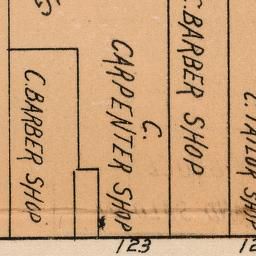 C. BARBER SHOP
C.
CARPENTER SHOP
C. BARBER SHOP
C. TAILOR SHOP
123